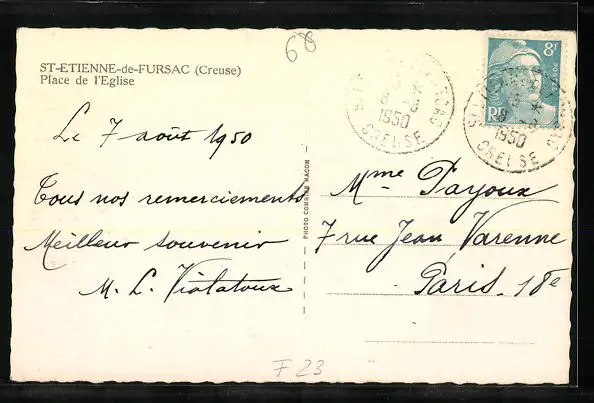 ST-ETIENNE-de-FURSAC (Creuse)
Place de l'Eglise
60
Le 7 août 1950
Tous nos remerciements
Meilleur souvenir
M. L. Violatoux
PHOTO COMBIER MACON
8
1950
CREUSE
8F
POSTES
RF
8
1950
CREUSE
Mme Payoux
7 rue Jean Varenne
Paris. 18e
F 23